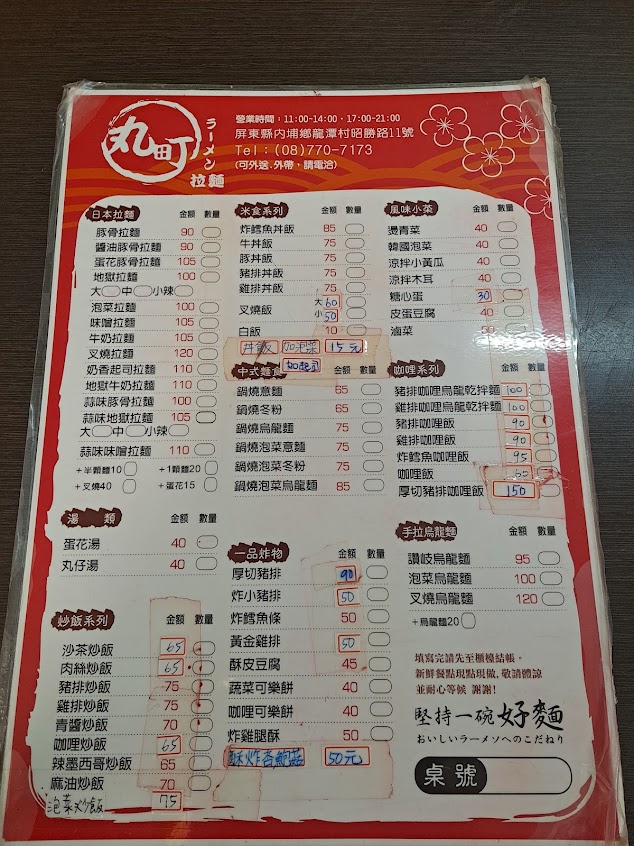 丸町
ラーメン
拉麵
營業時間：11:00-14:00・17:00-21:00
屏東縣內埔鄉龍潭村昭勝路11號
Tel：(08)770-7173
(可外送.外帶，請電洽)
日本拉麵 金額 數量
豚骨拉麵 90
醬油豚骨拉麵 90
蛋花豚骨拉麵 105
地獄拉麵 100
大 中 小辣
泡菜拉麵 100
味噌拉麵 100
牛奶拉麵 100
叉燒拉麵 120
奶香起司拉麵 110
地獄牛奶拉麵 110
蒜味豚骨拉麵 100
蒜味地獄拉麵 105
大 中 小辣
蒜味味噌拉麵 110
+半顆麵10 +1顆麵20
+叉燒40 +蛋花15
湯類 金額 數量
蛋花湯 40
丸仔湯 40
炒飯系列 金額 數量
沙茶炒飯 65
肉絲炒飯 65
豬排炒飯 75
雞排炒飯 75
青醬炒飯 70
咖哩炒飯 65
辣墨西哥炒飯 65
麻油炒飯 70
泡菜炒飯 75
米食系列 金額 數量
炸鱈魚丼飯 85
牛丼飯 75
豚丼飯 75
豬排丼飯 75
雞排丼飯 75
叉燒飯 大60 小50
白飯 10
丼飯 加泡菜 15元
加起司
中式麵食 金額 數量
鍋燒意麵 65
鍋燒冬粉 65
鍋燒烏龍麵 75
鍋燒泡菜意麵 75
鍋燒泡菜冬粉 75
鍋燒泡菜烏龍麵 85
一品炸物 金額 數量
厚切豬排 90
炸小豬排 50
炸鱈魚條 50
黃金雞排 50
酥皮豆腐 45
蔬菜可樂餅 40
咖哩可樂餅 40
炸雞腿酥 50
酥炸杏鮑菇 50元
風味小菜 金額 數量
燙青菜 40
韓國泡菜 40
涼拌小黃瓜 40
涼拌木耳 40
糖心蛋 30
皮蛋豆腐 40
滷菜 50
咖哩系列 金額 數量
豬排咖哩烏龍乾拌麵 100
雞排咖哩烏龍乾拌麵 100
豬排咖哩飯 90
雞排咖哩飯 90
炸鱈魚咖哩飯 95
咖哩飯 60
厚切豬排咖哩飯 150
手拉烏龍麵 金額 數量
讚岐烏龍麵 95
泡菜烏龍麵 100
叉燒烏龍麵 120
+烏龍麵20
填寫完請先至櫃檯結帳。
新鮮餐點現點現做，敬請體諒
並耐心等候 謝謝!
堅持一碗好麵
おいしいラーメソへのこだねり
桌號